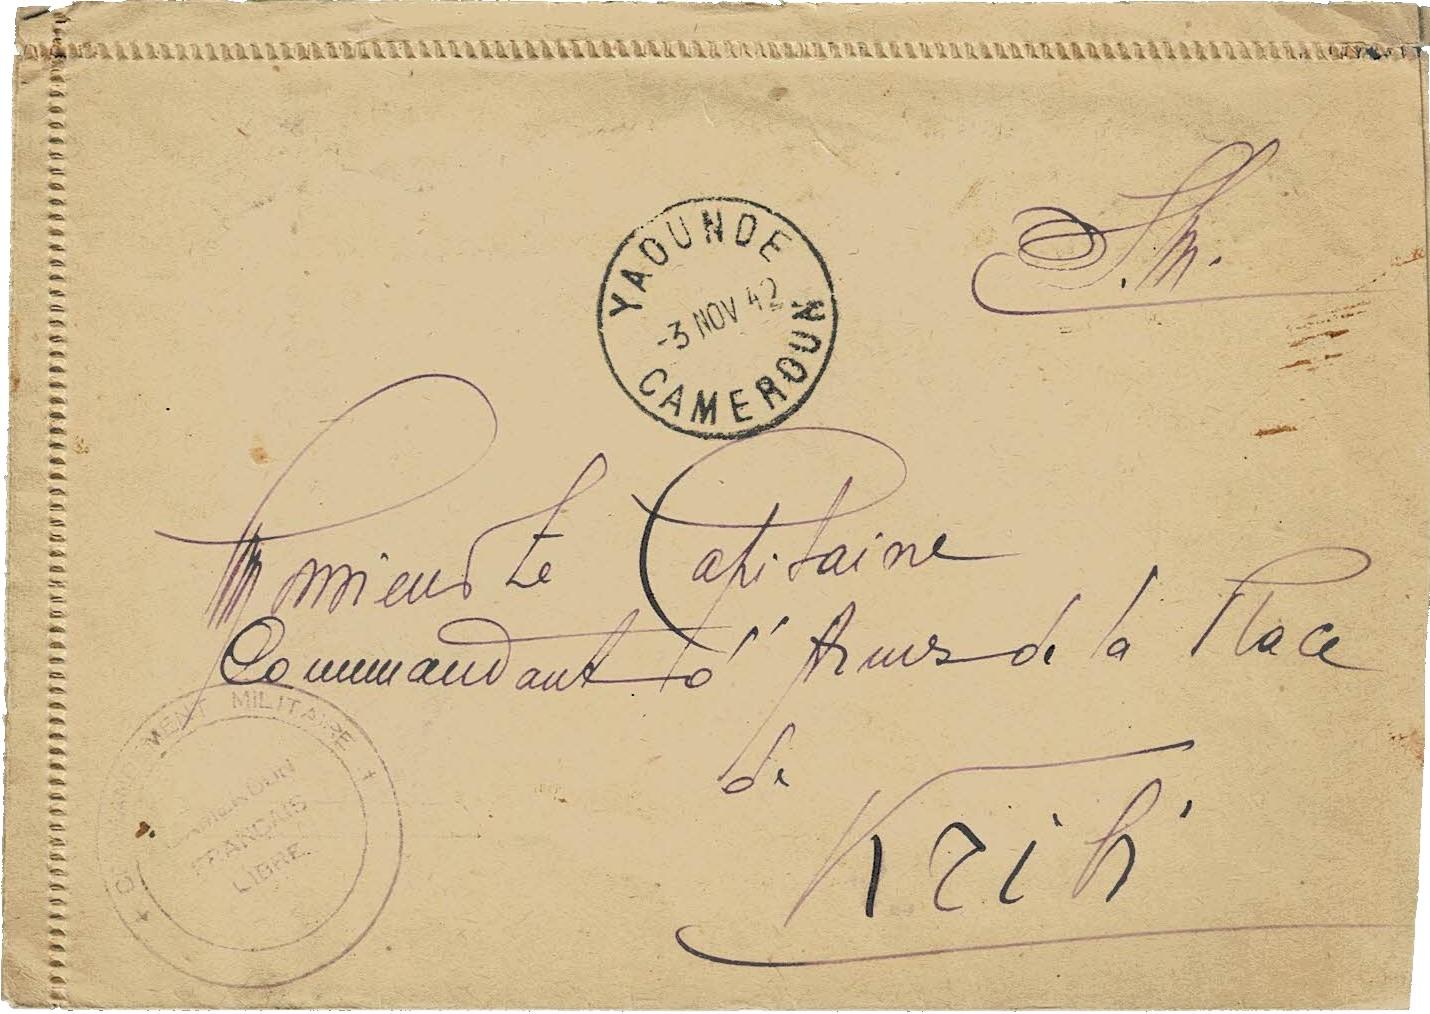 S.M.
YAOUNDE
-3 NOV 42
CAMEROUN
Monsieur Le Capitaine
Commandant d'Armes de la Place
de
Kribi
MILITAIRE
FRANÇAIS
LIBRE